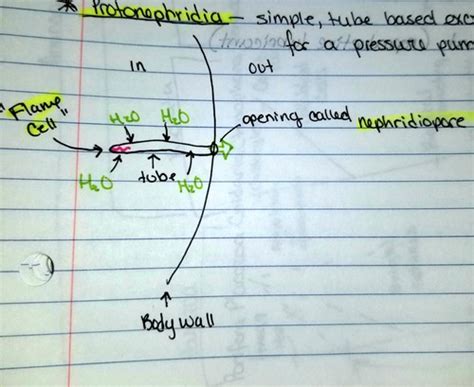 * Protonephridia - simple, tube based
for a pressure
in out
"Flame
Cell"
H2O H2O
opening called nephridiopore
H2O tube H2O
Body wall